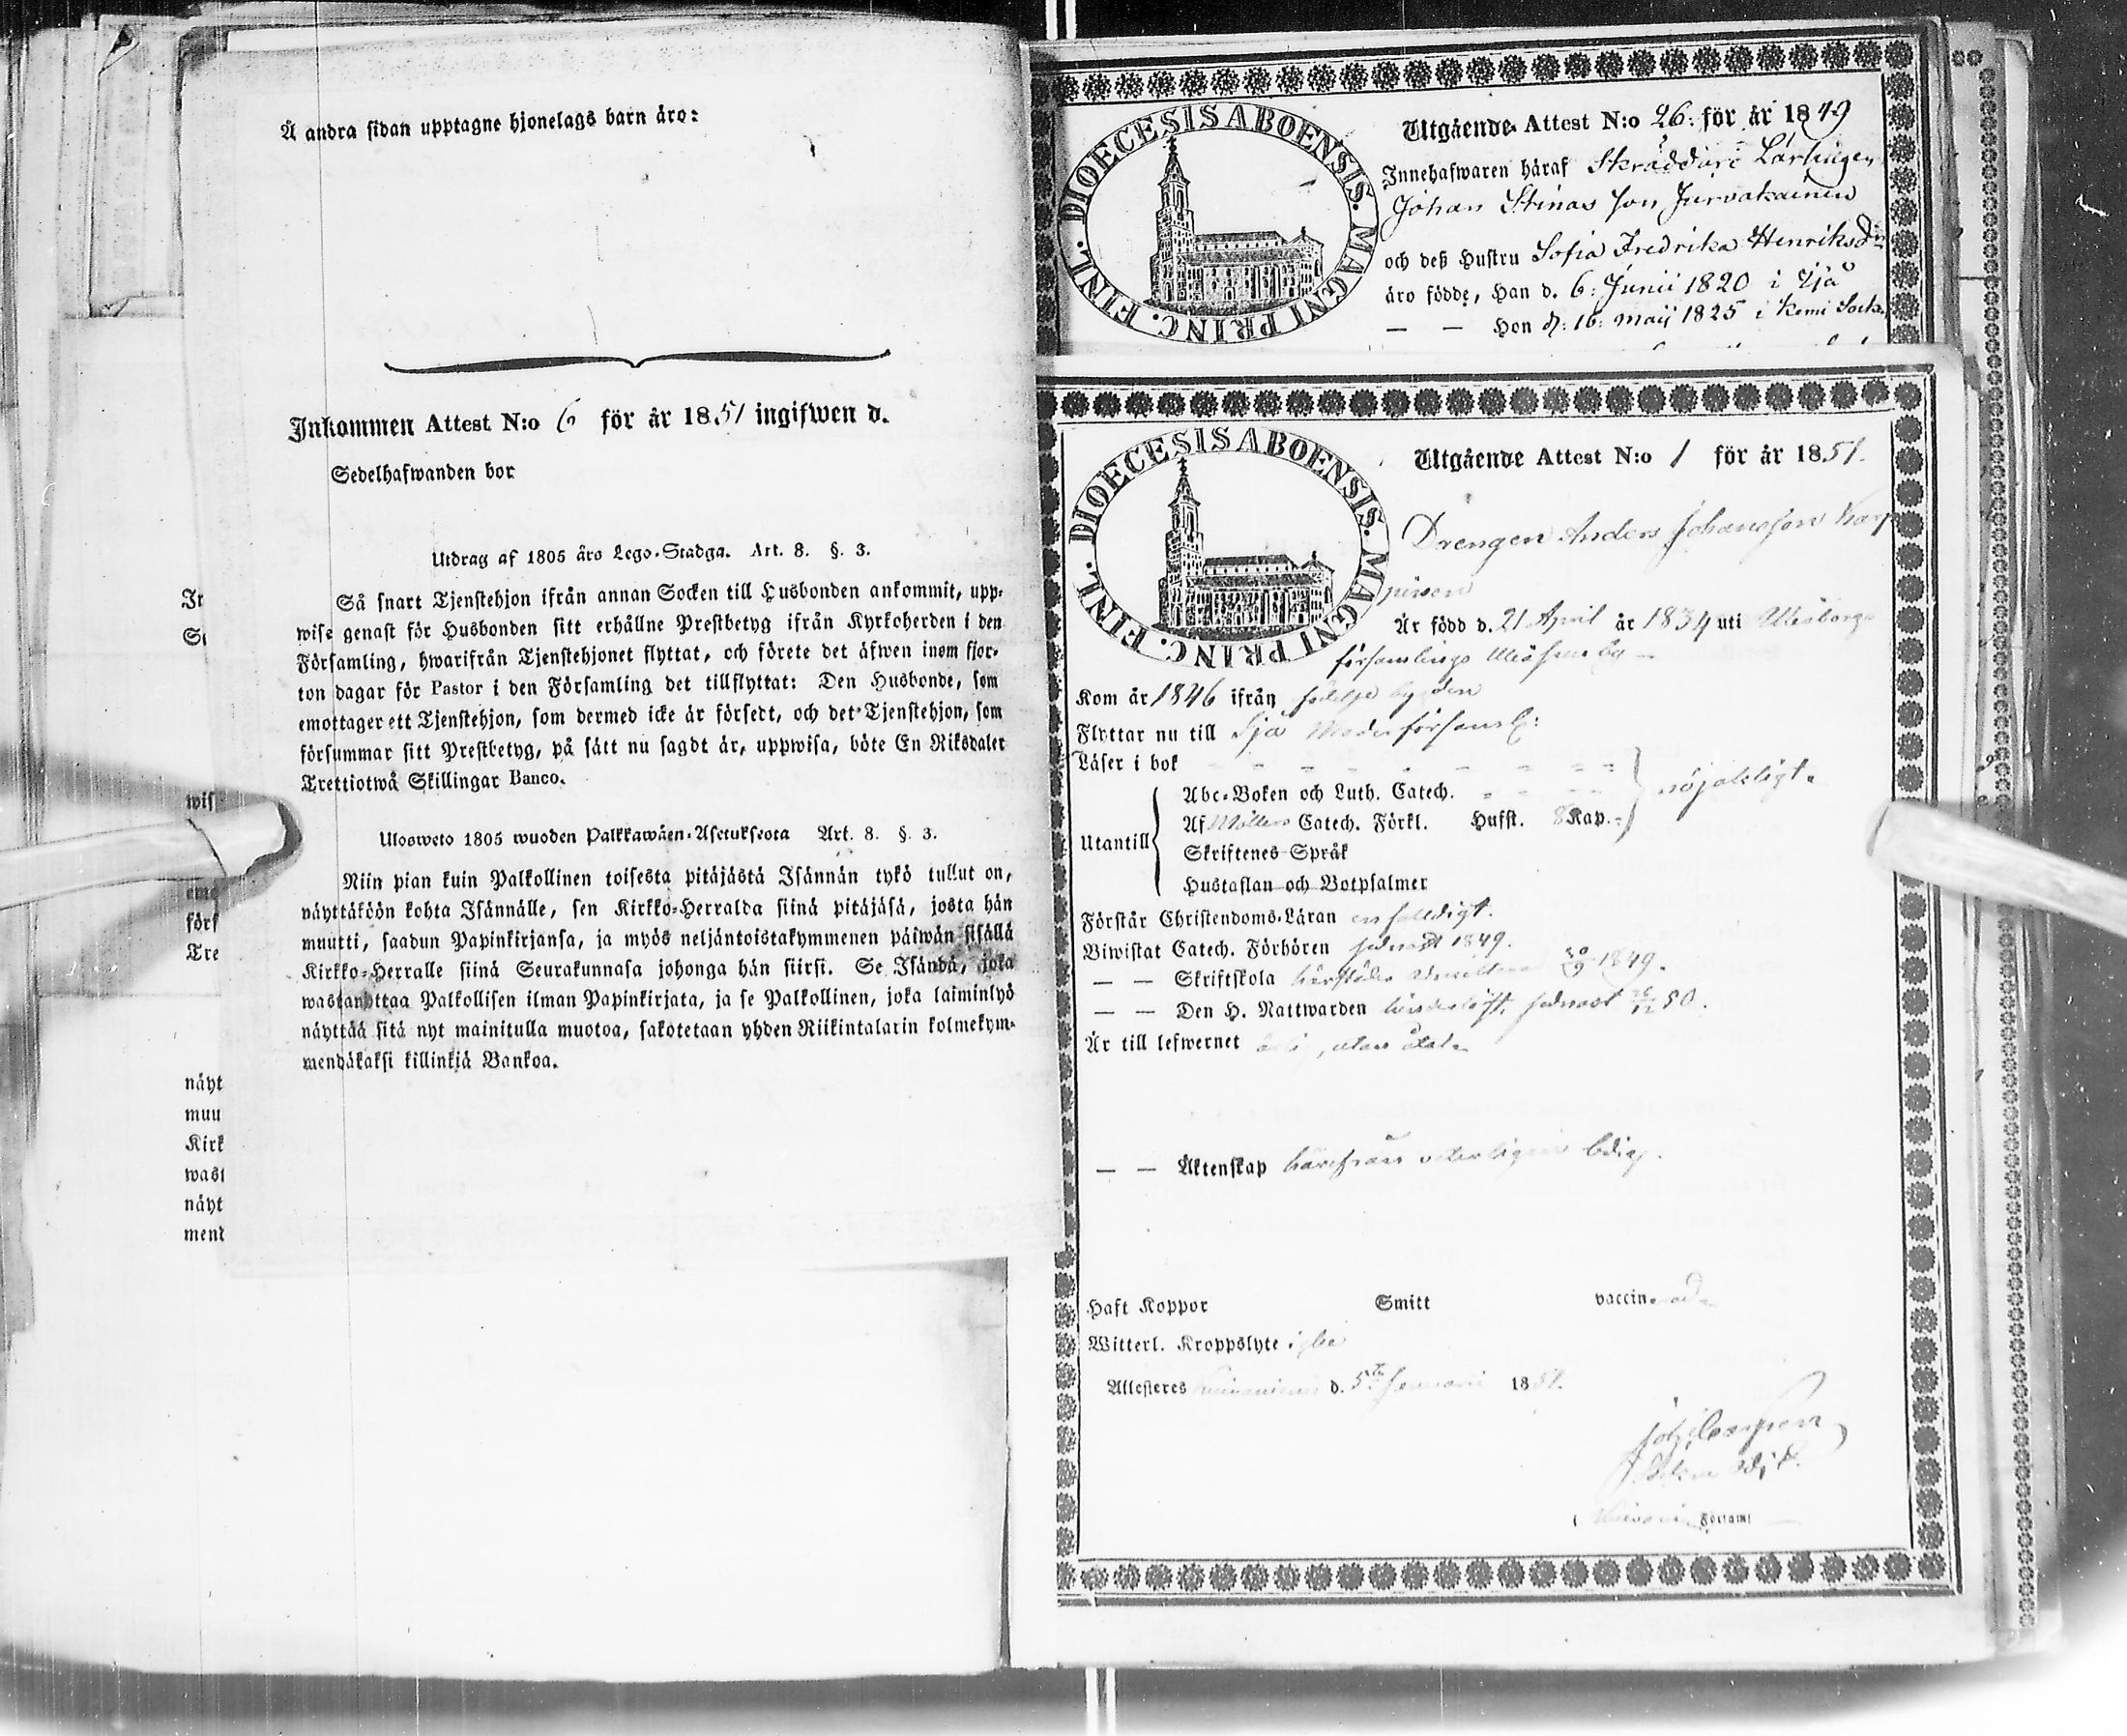 Å andra sidan upptagne hjonelags barn äro:
Inkommen Attest N:o 6 för år 1851 ingifwen d.
Sedelhafwanden bor
Utdrag af 1805 års Lego-Stadga. Art. 8. §. 3.
Så snart Tjenstehjon ifrån annan Socken till Husbonden ankommit, upp-
wise genast för Husbonden sitt erhållne Prestbetyg ifrån Kyrkoherden i den
Församling, hwarifrån Tjenstehjonet flyttat, och förete det äfwen inom fjor-
ton dagar för Pastor i den Församling det tillflyttat: Den Husbonde, som
emottager ett Tjenstehjon, som dermed icke är försedt, och det Tjenstehjon, som
försummar sitt Prestbetyg, på sätt nu sagdt är, uppwisa, böte En Riksdaler
Trettiotwå Skillingar Banco.
Ulosweto 1805 wuoden Palkkawäen-Asetuksesta Art. 8. §. 3.
Niin pian kuin Palkollinen toisesta pitäjästä Isännän tykö tullut on,
näyttäköön kohta Isännälle, sen Kirkko-Herralda siinä pitäjäsä, josta hän
muutti, saadun Papinkirjansa, ja myös neljäntoistakymmenen päiwän sisällä
Kirkko-Herralle siinä Seurakunnasa johonga hän siirsi. Se Isändä, joka
wastanottaa Palkollisen ilman Papinkirjata, ja se Palkollinen, joka laiminlyö
näyttää sitä nyt mainitulla muotoa, sakotetaan yhden Riikintalarin kolmekym-
mendäkaksi killinkiä Bankoa.
wis
förs
Tre
näyt
muu
Kirk
wast
näyt
mend
DIOECESIS ABOENSIS. MAGNI PRINC. FINL.
Utgående Attest N:o 26: för år 1849
Innehafwaren häraf Skräddare Lärlingen
Johan Stinas son Jurvakainen
och deß Hustru Sofia Fredrika Henriksdr
äro födde, Han d. 6: Junii 1820 i Ijå
— — Hon d: 16: Maij 1825 i Kemi Sock.
DIOECESIS ABOENSIS. MAGNI PRINC. FINL.
Utgående Attest N:o 1 för år 1851.
Drengen Anders Johansson Karp
pinen
Är född d. 21 April år 1834 uti Uleåborgs
församlings
Kom år 1846 ifrån
Flyttar nu till Ijå Moderförsaml:
Läser i bok
Abc-Boken och Luth. Catech.
nöjaktigt.
Utantill
Af Möllers Catech. Förkl. Hufst. 8 Kap.
Skriftenes Språk
Hustaflan och Botpsalmer
Förstår Christendoms-Läran enfaldigt.
Biwistat Catech. Förhören sednast 1849.
— — Skriftskola 1849.
— — Den H. Nattwarden sednast 50.
Är till lefwernet , utan
— — Äktenskap härifrån ledig.
Haft Koppor Smitt vaccinerad
Witterl. Kroppslyte
Attesteres d. 5te Januari 1851.
Församl